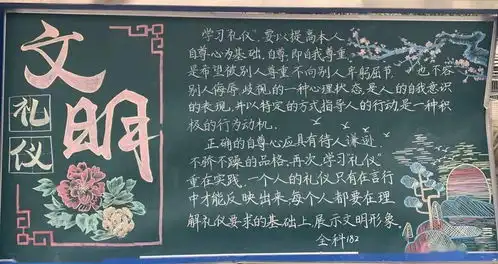 文明
礼仪
学习礼仪,要以提高本人
自尊心为基础,自尊即自我尊重,
是希望被别人尊重,不向别人卑躬屈节,也不容
别人侮辱歧视的一种心理状态,是人的自我意识
的表现,并以特定的方式指导人的行动,是一种积
极的行为动机。
正确的自尊心应具有待人谦逊,
不骄不躁的品格,再次,学习礼仪
重在实践,一个人的礼仪只有在言行
中才能反映出来,每个人都要在理
解礼仪要求的基础上,展示文明形象。
全科182